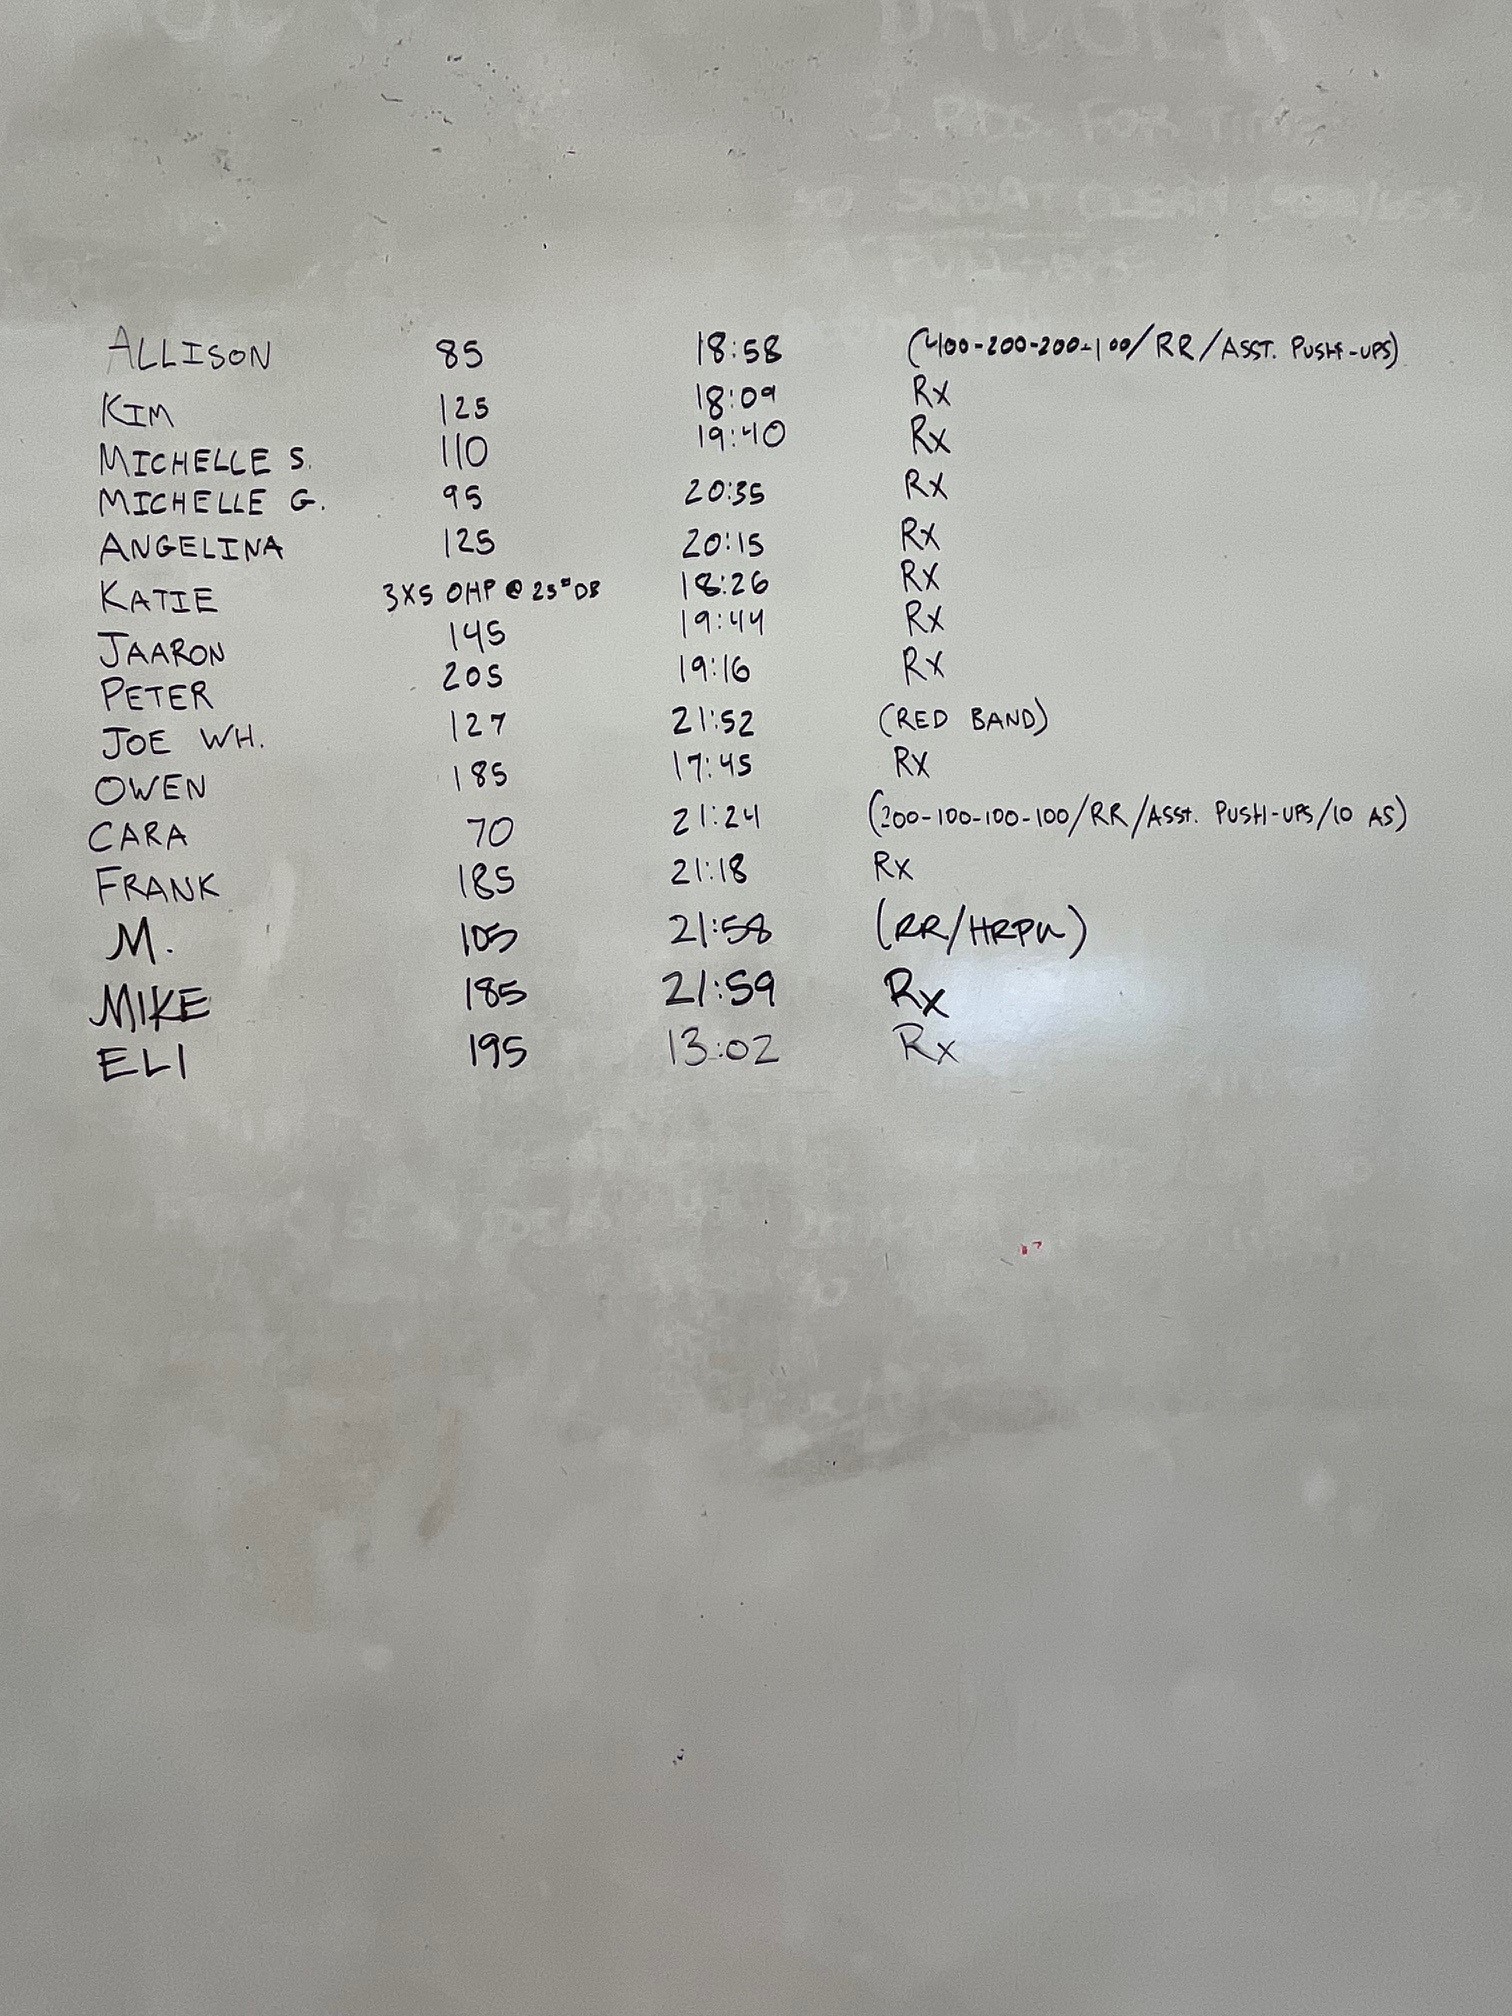 3 RDS. FOR TIME
SQUAT CLEAN
PULL-UPS
ALLISON 85 18:58 (400-200-200-100/RR/ASST. PUSH-UPS)
KIM 125 18:09 Rx
MICHELLE S. 110 19:40 Rx
MICHELLE G. 95 20:35 Rx
ANGELINA 125 20:15 Rx
KATIE 3X5 OHP @ 25# DB 18:26 Rx
JAARON 145 19:44 Rx
PETER 205 19:16 Rx
JOE WH. 127 21:52 (RED BAND)
OWEN 185 17:45 Rx
CARA 70 21:24 (200-100-100-100/RR/ASST. PUSH-UPS/10 AS)
FRANK 185 21:18 Rx
M. 105 21:58 (RR/HRPU)
MIKE 185 21:59 Rx
ELI 195 13:02 Rx